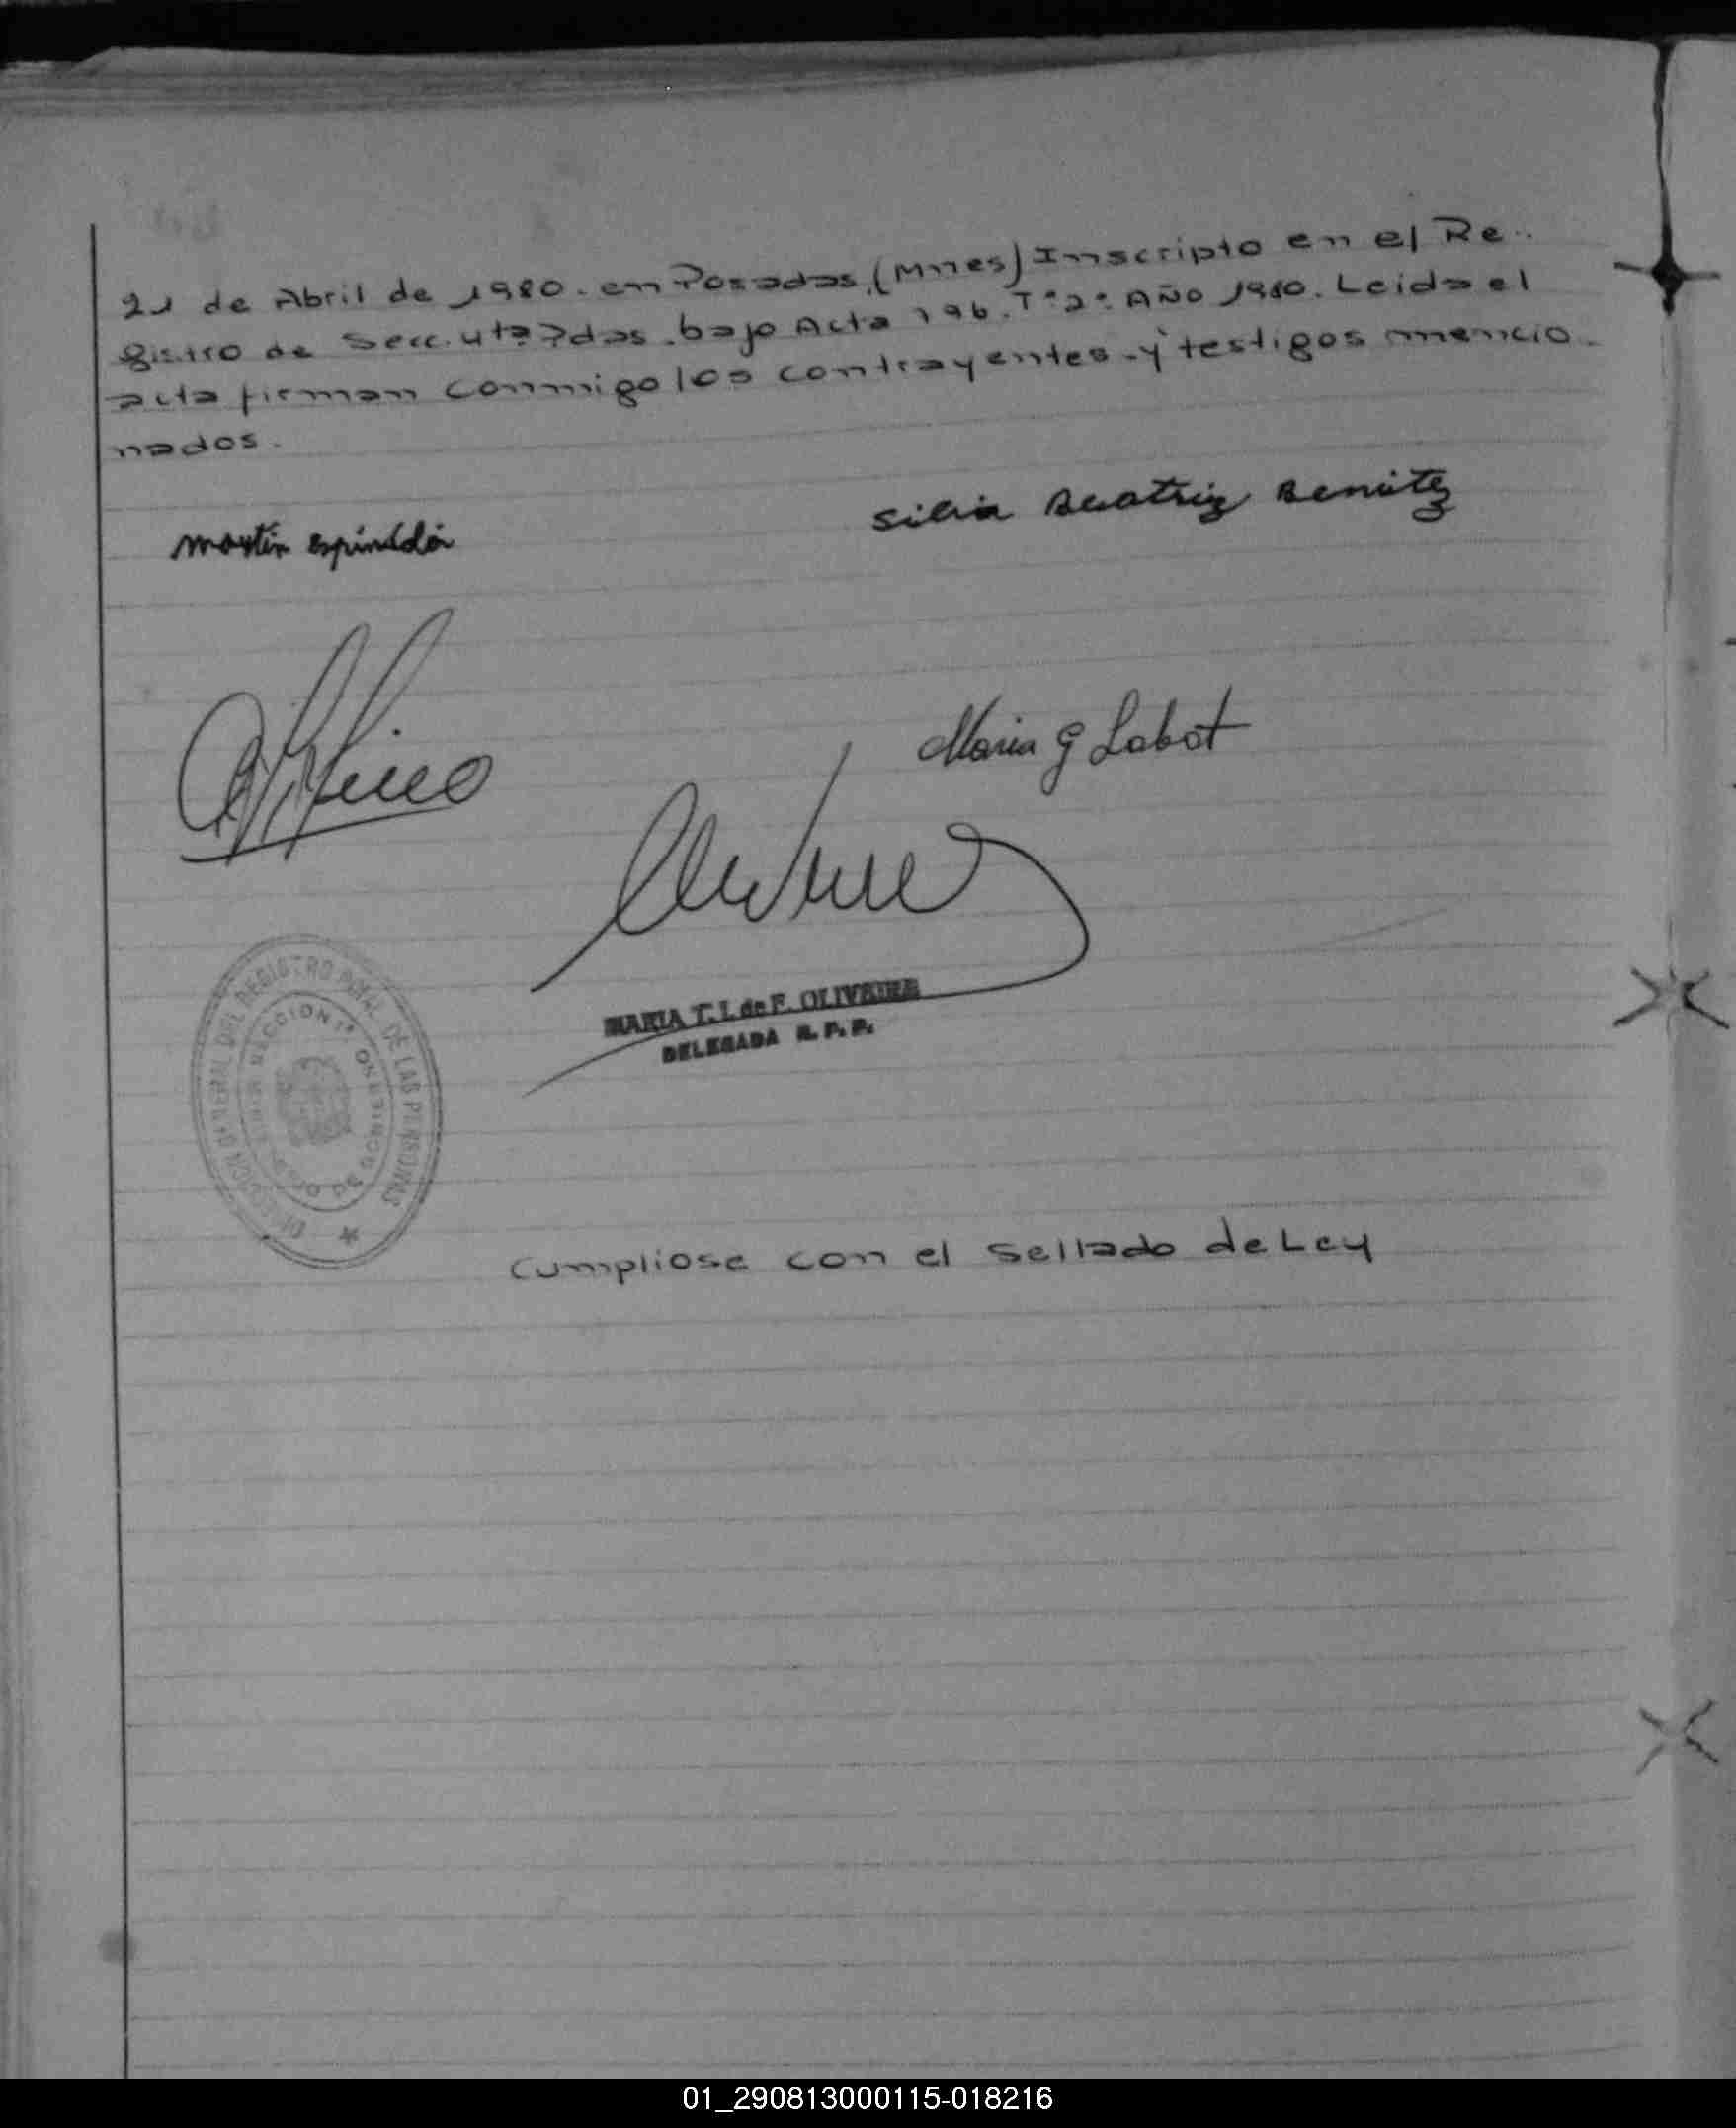 21 de Abril de 1980. en Posadas, (Mnes) Inscripto en el Re..
gistro de Secc. 4ta Pdas. bajo Acta 196. T°2°. Año 1980. Leida el
acta firman conmigo los contrayentes y testigos mencio-
nados.
martin espindola
Silvia Beatriz Benitez
Maria G Labat
MARIA T. I. de F. OLIVEIRA
DELEGADA R. P. P.
DIRECCION GENERAL DEL REGISTRO PCIAL. DE LAS PERSONAS
SECCION 1ª
Cumpliose con el Sellado de Ley
01_290813000115-018216